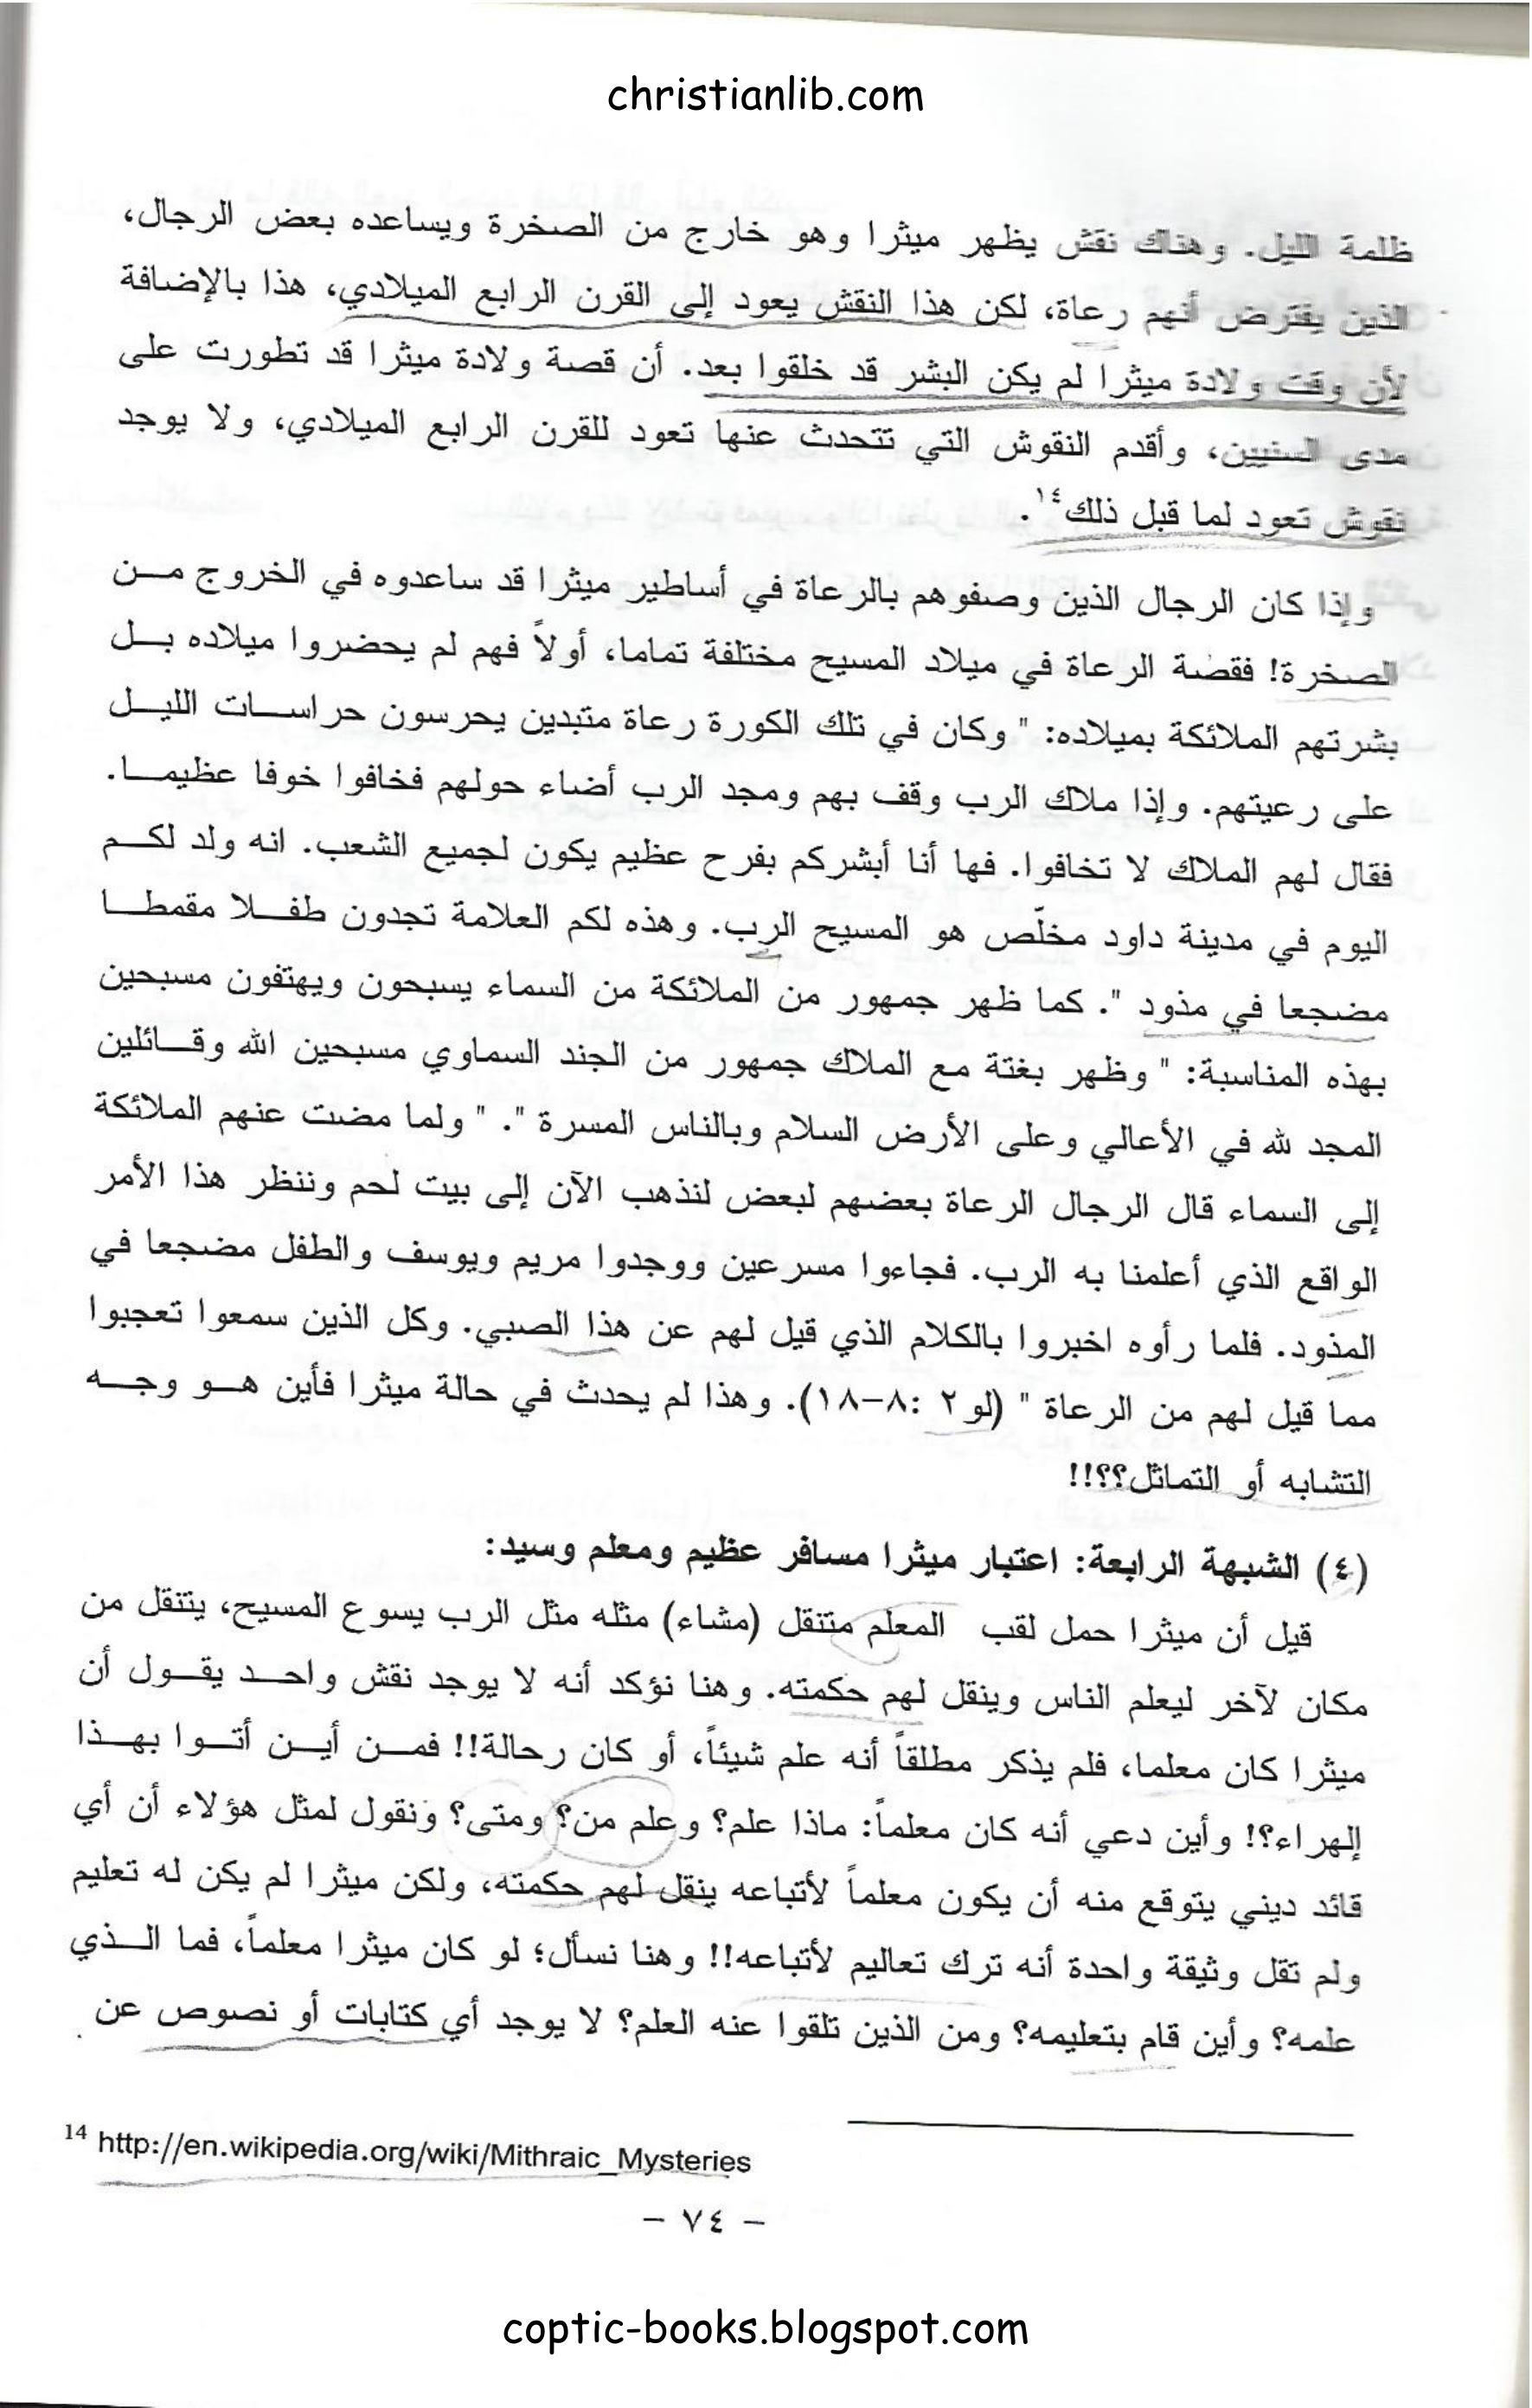 christianlib.com
ظلمة الليل. وهناك نقش يظهر ميثرا وهو خارج من الصخرة ويساعده بعض الرجال،
الذين يفترض أنهم رعاة، لكن هذا النقش يعود إلى القرن الرابع الميلادي، هذا بالإضافة
لأن وقت ولادة ميثرا لم يكن البشر قد خلقوا بعد. أن قصة ولادة ميثرا قد تطورت على
مدى السنيين، وأقدم النقوش التي تتحدث عنها تعود للقرن الرابع الميلادي، ولا يوجد
نقوش تعود لما قبل ذلك١٤.
وإذا كان الرجال الذين وصفوهم بالرعاة في أساطير ميثرا قد ساعدوه في الخروج من
الصخرة! فقصة الرعاة في ميلاد المسيح مختلفة تماما، أولاً فهم لم يحضروا ميلاده بل
بشرتهم الملائكة بميلاده: " وكان في تلك الكورة رعاة متبدين يحرسون حراسات الليل
على رعيتهم. وإذا ملاك الرب وقف بهم ومجد الرب أضاء حولهم فخافوا خوفا عظيما.
فقال لهم الملاك لا تخافوا. فها أنا أبشركم بفرح عظيم يكون لجميع الشعب. انه ولد لكم
اليوم في مدينة داود مخلّص هو المسيح الرب. وهذه لكم العلامة تجدون طفلا مقمطا
مضجعا في مذود ". كما ظهر جمهور من الملائكة من السماء يسبحون ويهتفون مسبحين
بهذه المناسبة: " وظهر بغتة مع الملاك جمهور من الجند السماوي مسبحين الله وقائلين
المجد لله في الأعالي وعلى الأرض السلام وبالناس المسرة ". " ولما مضت عنهم الملائكة
إلى السماء قال الرجال الرعاة بعضهم لبعض لنذهب الآن إلى بيت لحم وننظر هذا الأمر
الواقع الذي أعلمنا به الرب. فجاءوا مسرعين ووجدوا مريم ويوسف والطفل مضجعا في
المذود. فلما رأوه اخبروا بالكلام الذي قيل لهم عن هذا الصبي. وكل الذين سمعوا تعجبوا
مما قيل لهم من الرعاة " (لو٢ :٨-١٨). وهذا لم يحدث في حالة ميثرا فأين هو وجه
التشابه أو التماثل؟؟!!
(٤) الشبهة الرابعة: اعتبار ميثرا مسافر عظيم ومعلم وسيد:
قيل أن ميثرا حمل لقب المعلم متنقل (مشاء) مثله مثل الرب يسوع المسيح، يتنقل من
مكان لآخر ليعلم الناس وينقل لهم حكمته. وهنا نؤكد أنه لا يوجد نقش واحد يقول أن
ميثرا كان معلما، فلم يذكر مطلقاً أنه علم شيئاً، أو كان رحالة!! فمن أين أتوا بهذا
الهراء؟! وأين دعي أنه كان معلماً: ماذا علم؟ وعلم من؟ ومتى؟ ونقول لمثل هؤلاء أن أي
قائد ديني يتوقع منه أن يكون معلماً لأتباعه ينقل لهم حكمته، ولكن ميثرا لم يكن له تعليم
ولم تقل وثيقة واحدة أنه ترك تعاليم لأتباعه!! وهنا نسأل؛ لو كان ميثرا معلماً، فما الذي
علمه؟ وأين قام بتعليمه؟ ومن الذين تلقوا عنه العلم؟ لا يوجد أي كتابات أو نصوص عن
14 http://en.wikipedia.org/wiki/Mithraic_Mysteries
- ٧٤ -
coptic-books.blogspot.com